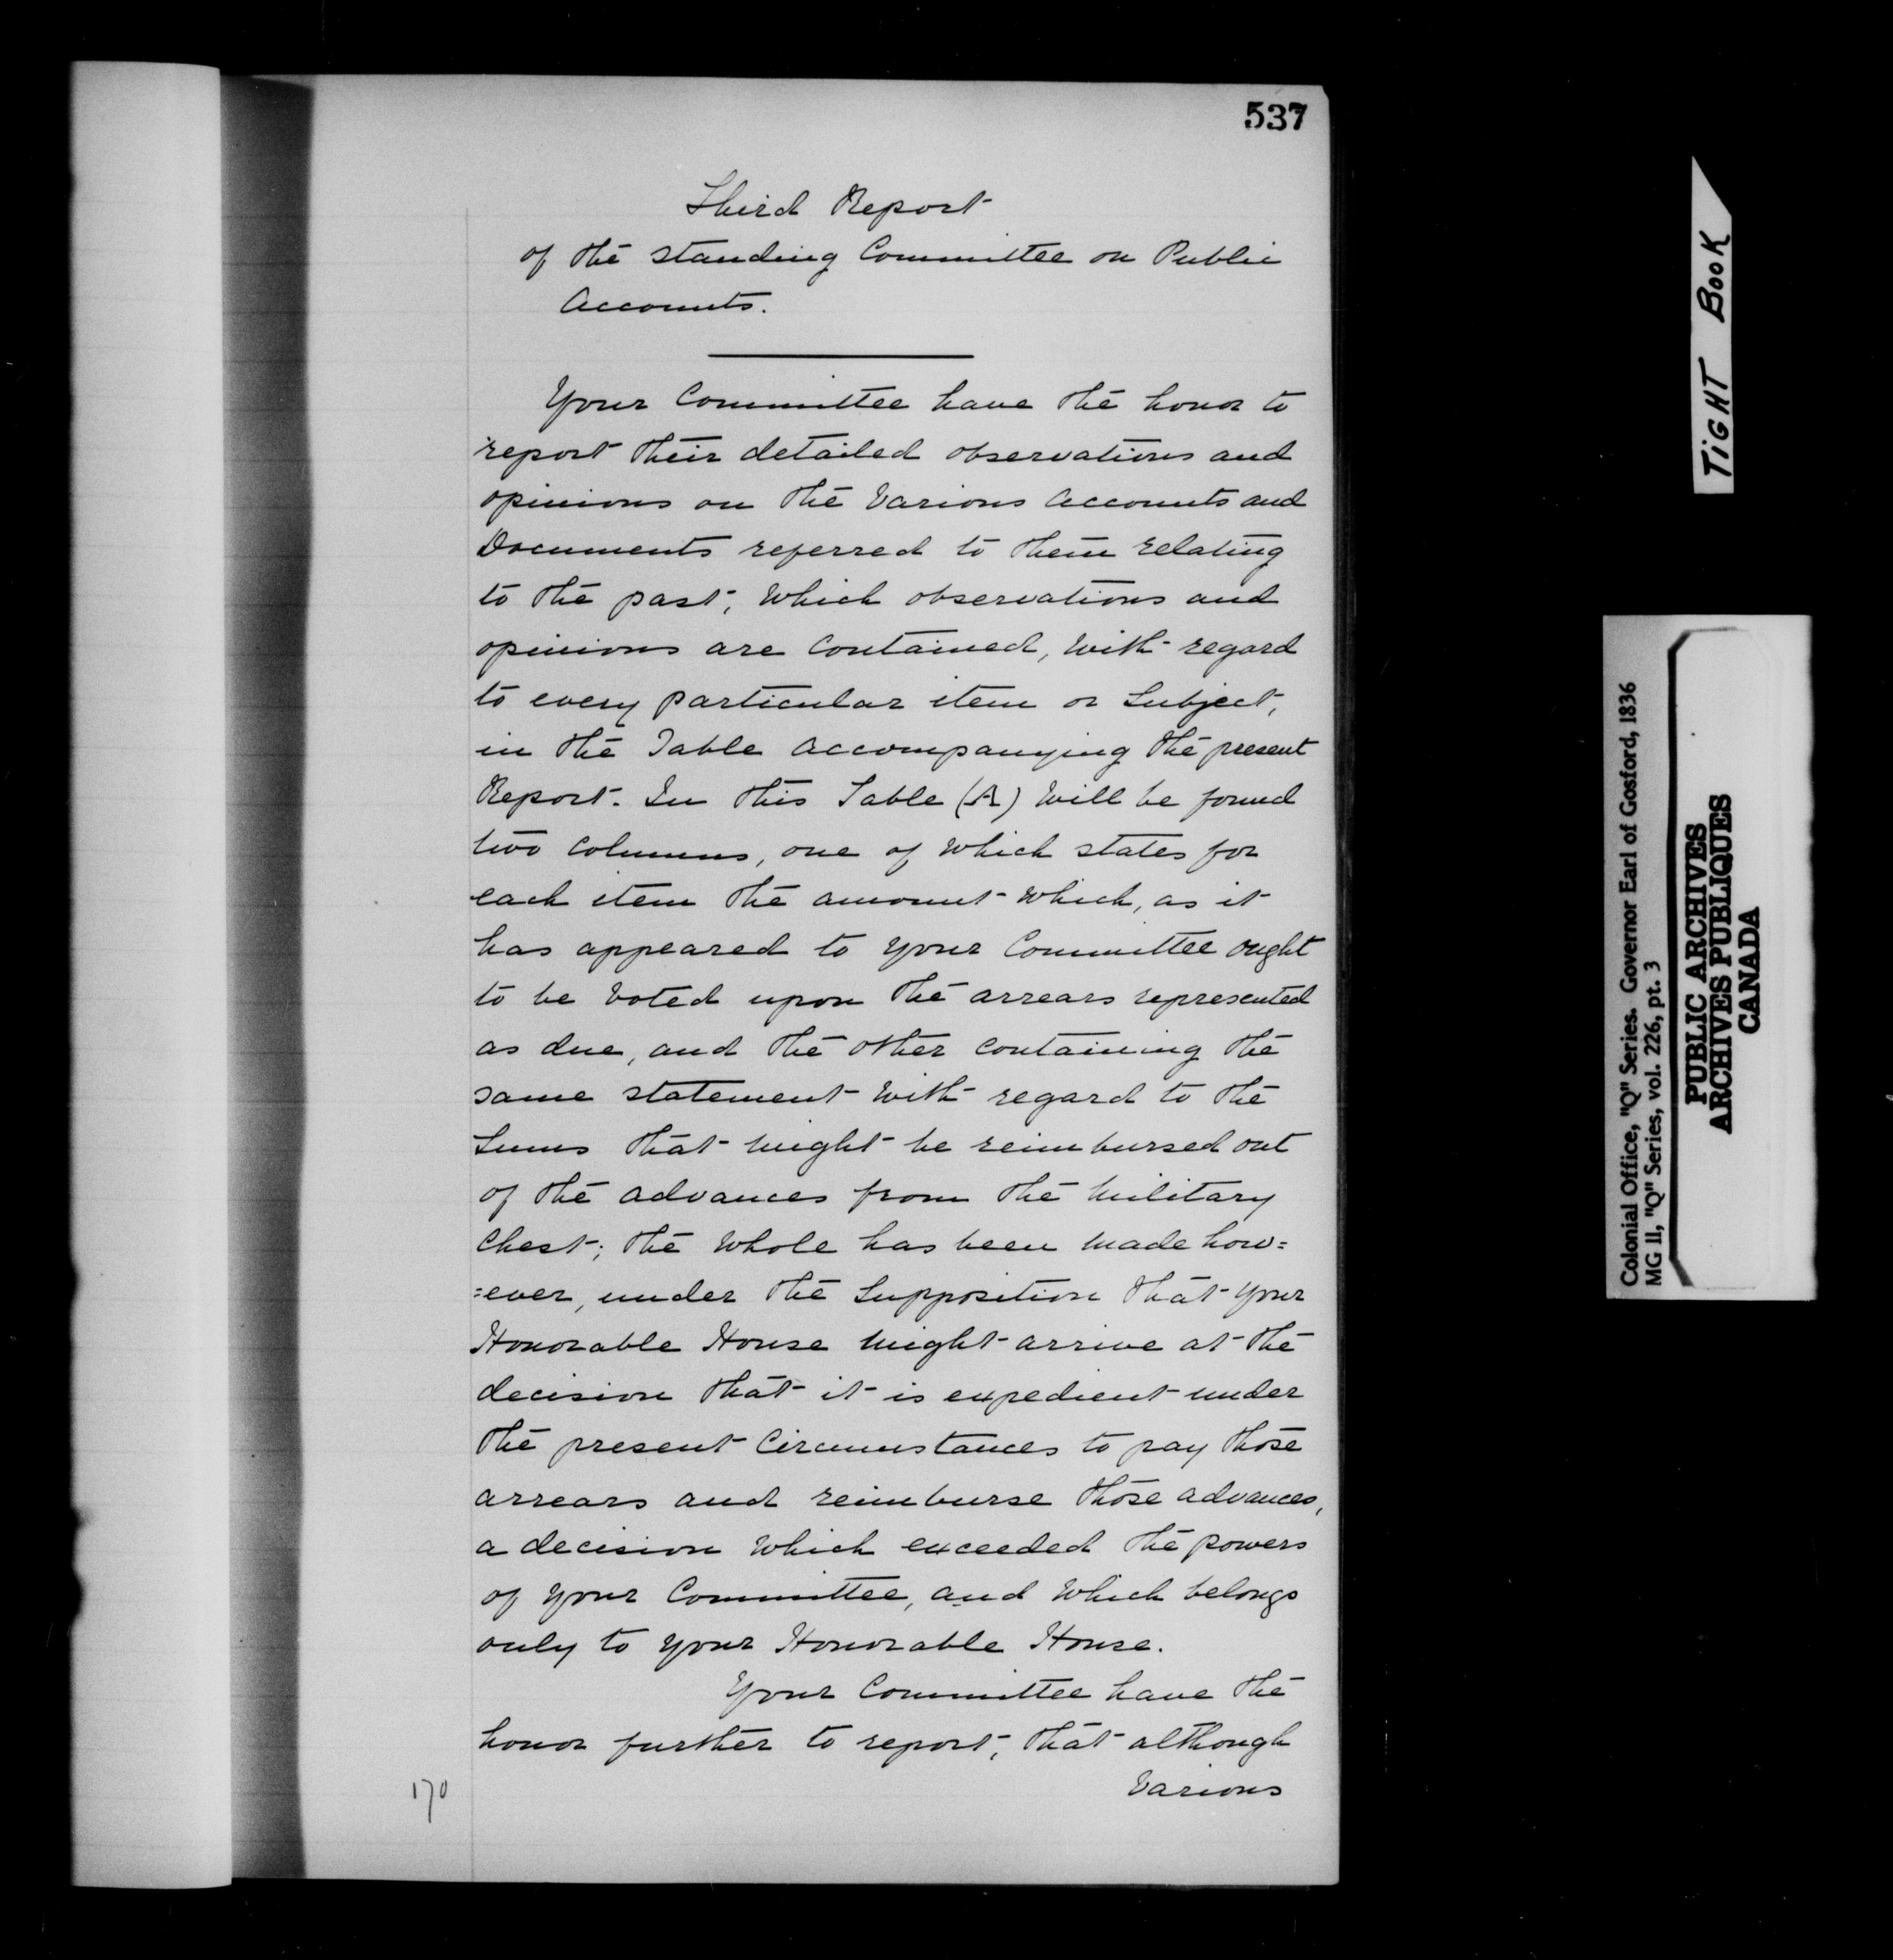 537
Third Report
of the standing Committee on Public
Accounts.
Your Committee have the honor to
report their detailed observations and
opinions on the various accounts and
Documents referred to them relating
to the past, which observations and
opinions are contained, with regard
to every particular item or subject,
in the Table accompanying the present
Report. In this Table (A) will be found
two columns, one of which states for
each item the amount which, as it
has appeared to your Committee ought
to be voted upon the arrears represented
as due, and the other containing the
same statement with regard to the
sums that might be reimbursed out
of the advances from the military
Chest; the whole has been made how=
=ever, under the supposition that your
Honorable House might arrive at the
decision that it is expedient under
the present circumstances to pay those
arrears and reimburse those advances,
a decision which exceeded the powers
of your Committee, and which belongs
only to your Honorable House.
Your Committee have the
honor further to report, that although
various
170
TIGHT BOOK
Colonial Office, "Q" Series. Governor Earl of Gosford, 1836
MG 11, "Q" Series, vol. 226, pt. 3
PUBLIC ARCHIVES
ARCHIVES PUBLIQUES
CANADA